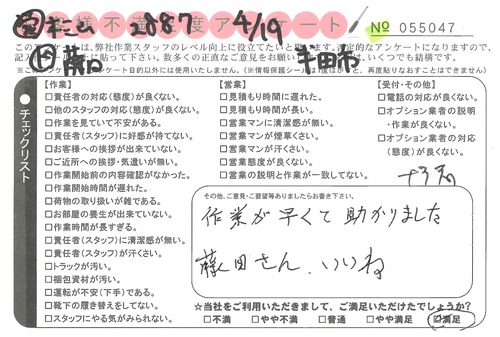 客様不満足度アンケート
2887 4/19
№ 055047
半田市
このアンケートは、弊社作業スタッフのレベル向上に役立てたいと
定的なアンケートになりますので、
チェックリスト
【作業】
□責任者の対応(態度)が良くない。
□他のスタッフの対応(態度)が良くない。
□作業を見ていて不安がある。
□責任者(スタッフ)に好感が持てない。
□お客様への挨拶が出来ていない。
□ご近所への挨拶・気遣いが無い。
□作業開始前の内容確認がなかった。
□作業開始時間が遅れた。
□荷物の取り扱いが雑である。
□お部屋の養生が出来ていない。
□作業時間が長すぎる。
□責任者(スタッフ)に清潔感が無い。
□責任者(スタッフ)が汗くさい。
□トラックが汚い。
□梱包資材が汚い。
□運転が不安(下手)である。
□靴下の履き替えをしてない。
□スタッフにやる気がみられない。
【営業】
□見積もり時間に遅れた。
□見積もり時間が長い。
□営業マンに清潔感が無い。
□営業マンが煙草くさい。
□営業マンが汗くさい。
□営業態度が良くない。
□営業の説明と作業が一致してない。
【受付・その他】
□電話の対応が良くない。
□オプション業者の説明
・作業が良くない。
□オプション業者の対応
(態度)が良くない。
その他、ご意見・ご要望等ありましたらお書き下さい。
作業が早くて助かりました
藤田さん、いいね
☆当社をご利用いただきまして、ご満足いただけたでしょうか?
□不満 □やや不満 □普通 □やや満足 □満足